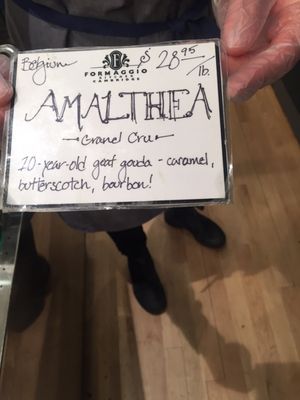 Belgium
$28.95/lb.
F
FORMAGGIO
KITCHEN
CAMBRIDGE
AMALTHEA
Grand Cru
10-year-old goat gouda - caramel,
butterscotch, bourbon!